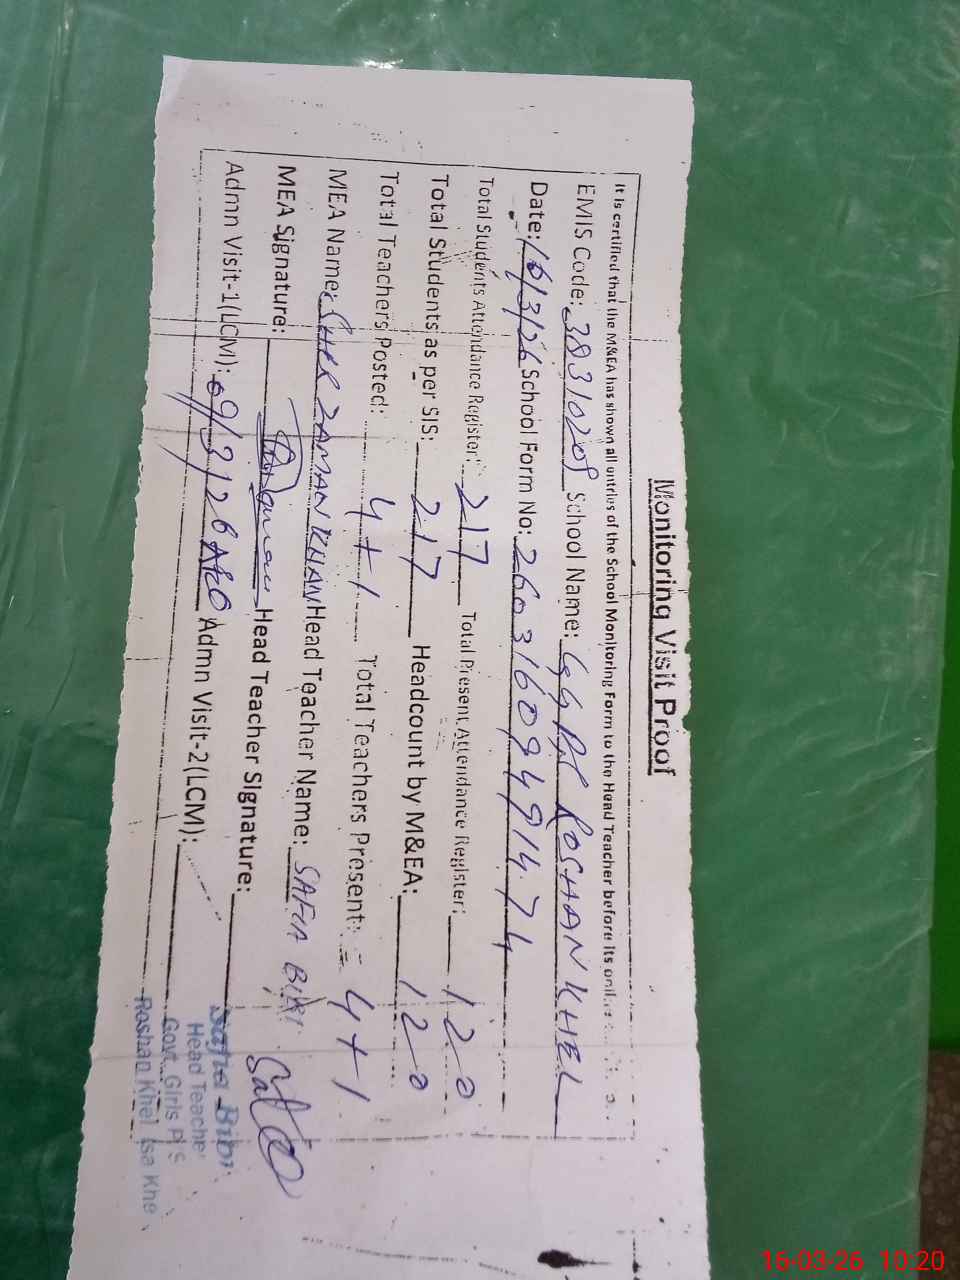 Monitoring Visit Proof
It is certified that the M&EA has shown all entries of the School Monitoring Form to the Head Teacher before its
EMIS Code: 38310208 School Name: GGPS ROSHAN KHEL
Date: 16/3/26 School Form No: 26031609491474
Total Students Attendance Register: 217 Total Present Attendance Register: 120
Total Students as per SIS: 217 Headcount by M&EA: 120
Total Teachers Posted: 4+1 Total Teachers Present: 4+1
MEA Name: SHER ZAMAN KHAN Head Teacher Name: SAFIA BIBI
MEA Signature: Head Teacher Signature:
Admn Visit-1(LCM): 09/3/26 AEO Admn Visit-2(LCM):
Safia Bibi
Head Teacher
Govt. Girls P/S
Roshan Khel Isa Khe
16-03-26 10:20